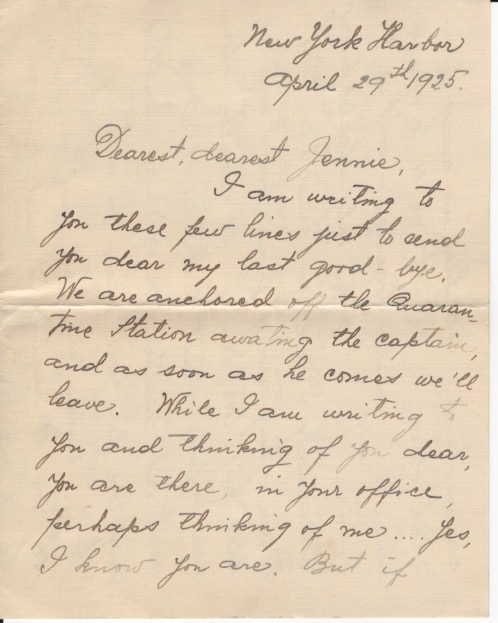 New York Harbor
April 29th 1925.
Dearest, dearest Jennie,
I am writing to
you these few lines just to send
you dear my last good-bye.
We are anchored off the Quaran-
tine Station awating the captain,
and as soon as he comes we'll
leave. While I am writing to
you and thinking of you dear,
you are there, in your office,
perhaps thinking of me .... Yes,
I know you are. But if